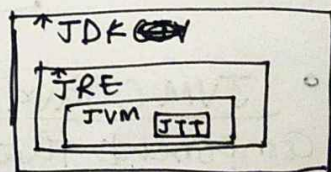 JDK
JRE
JVM JIT